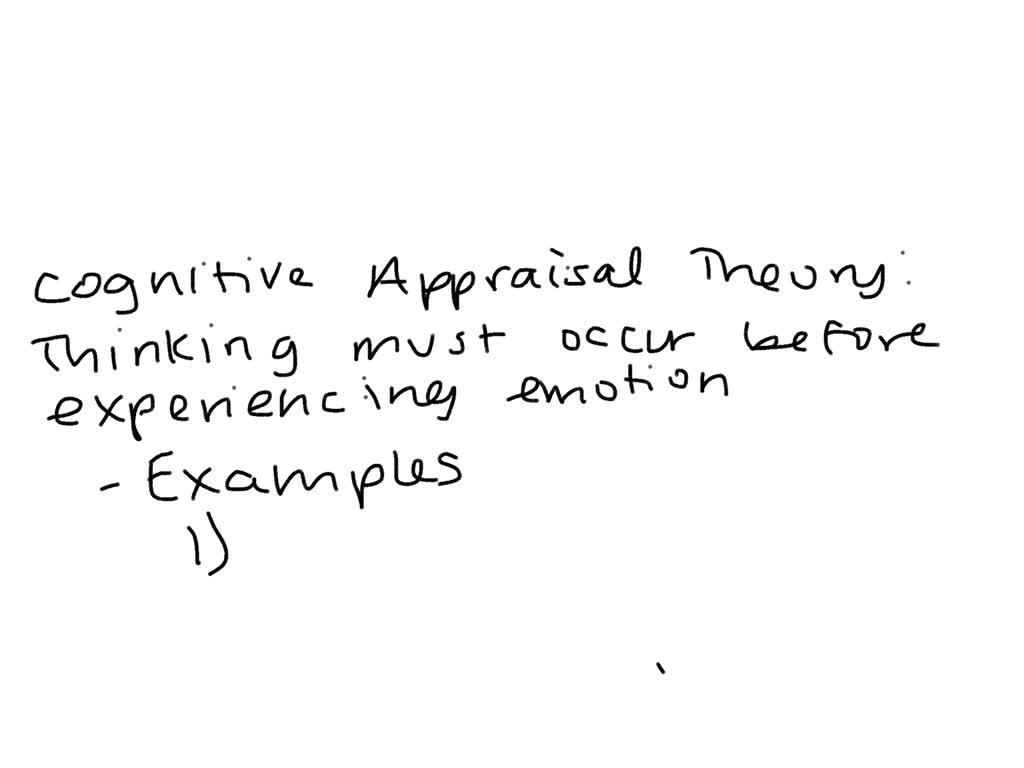 Cognitive Appraisal Theory:
Thinking must occur before
experiencing emotion
- Examples
1)